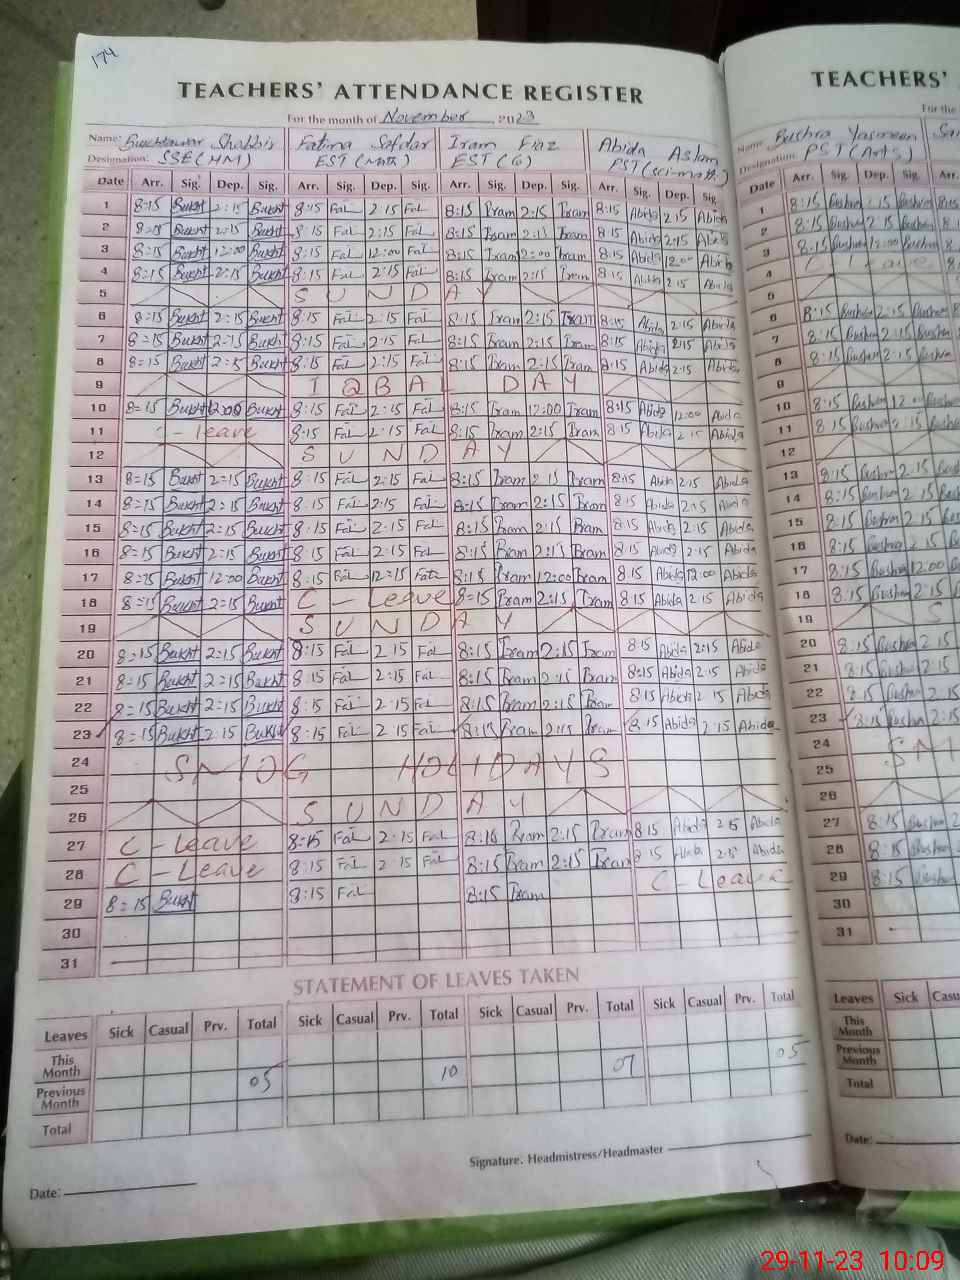 174
TEACHERS' ATTENDANCE REGISTER
For the month of November, 2023
Name: Shabbir Fatima Safdar Iram Fiaz Abida Aslam
Designation: SSE(HM) EST(Math) EST(G) PST(sci-math)
Date Arr. Sig. Dep. Sig. Arr. Sig. Dep. Sig. Arr. Sig. Dep. Sig. Arr. Sig. Dep. Sig
1 8:15 Bukht 2:15 Bukht 8:15 Fat 2:15 Fat 8:15 Iram 2:15 Iram 8:15 Abida 2:15 Abida
2 Bukht 2:15 Bukht 8:15 Fat 2:15 Fat 8:15 Iram Iram 8:15 Abida 2:15 Abida
3 8:15 Bukht 12:00 Bukht 8:15 Fat 12:00 Fat 8:15 Iram Iram 8:15 Abida 12:00 Abida
4 8:15 Bukht 2:15 Bukht 8:15 Fat 2:15 Fat 8:15 Iram 2:15 Iram 8:15 Abida 2:15 Abida
5 SUNDAY
6 8=15 Bukht 2:15 Bukht 8:15 Fat 2:15 Fat 8:15 Iram 2:15 Iram 8:15 Abida 2:15 Abida
7 8=15 Bukht 2=15 Bukht 8:15 Fat 2:15 Fat 8:15 Iram 2:15 Iram 8:15 Abida 2:15 Abida
8 8=15 Bukht Bukht 8:15 Fat 2:15 Fat 8:15 Iram 2:15 Iram 8:15 Abida 2:15 Abida
9 IQBAL DAY
10 8=15 Bukht 12:00 Bukht 8:15 Fat 2:15 Fat 8:15 Iram 12:00 Iram 8:15 Abida 12:00 Abida
11 C - leave 8:15 Fat 2:15 Fat 8:15 Iram 2:15 Iram 8:15 Abida 2:15 Abida
12 SUNDAY
13 8=15 Bukht 2=15 Bukht 8:15 Fat 2:15 Fat 8:15 Iram 2:15 Iram 8:15 Abida 2:15 Abida
14 8=15 Bukht 2=15 Bukht 8:15 Fat 2:15 Fat 8:15 Iram 2:15 Iram 8:15 Abida 2:15 Abida
15 8=15 Bukht 2=15 Bukht 8:15 Fat 2:15 Fat 8:15 Iram 2:15 Iram 8:15 Abida 2:15 Abida
16 8=15 Bukht 2:15 Bukht 8:15 Fat 2:15 Fat 8:15 Iram 2:15 Iram 8:15 Abida 2:15 Abida
17 8=15 Bukht 12:00 Bukht 8:15 Fat 12=15 Fat 8:15 Iram 12:00 Iram 8:15 Abida 12:00 Abida
18 8=15 Bukht 2=15 Bukht C - Leave 8=15 Iram 2:15 Iram 8:15 Abida 2:15 Abida
19 SUNDAY
20 8=15 Bukht 2=15 Bukht 8:15 Fat 2:15 Fat 8:15 Iram 2:15 Iram 8:15 Abida 2:15 Abida
21 8=15 Bukht 2=15 Bukht 8:15 Fat 2:15 Fat 8:15 Iram 2:15 Iram 8:15 Abida 2:15 Abida
22 8=15 Bukht 2=15 Bukht 8:15 Fat 2:15 Fat 8:15 Iram 2:15 Iram 8:15 Abida 2:15 Abida
23 8=15 Bukht 2:15 Bukht 8:15 Fat 2:15 Fat 8:15 Iram 2:15 Iram 8:15 Abida 2:15 Abida
24 SMOG HOLIDAYS
25
26 SUNDAY
27 C - Leave 8:15 Fat 2:15 Fat 8:15 Iram 2:15 Iram 8:15 Abida 2:15 Abida
28 C - Leave 8:15 Fat 2:15 Fat 8:15 Iram 2:15 Iram 8:15 Abida 2:15 Abida
29 8=15 Bukht 8:15 Fat 8:15 Iram C - Leave
30
31
STATEMENT OF LEAVES TAKEN
Leaves Sick Casual Prv. Total Sick Casual Prv. Total Sick Casual Prv. Total Sick Casual Prv. Total
This Month
Previous Month 05 10 07 05
Total
Signature: Headmistress/Headmaster
Date:
TEACHERS'
For the
Name Bushra Yasmeen
Designation: PST(Arts)
Date Arr. Sig. Dep. Sig. Arr.
1 8:15 Bushra 2:15 Bushra
2 8:15 Bushra 2:15 Bushra
3 8:15 Bushra 12:00 Bushra
4 C Leave
5
6 8:15 Bushra 2:15 Bushra
7 8:15 Bushra 2:15 Bushra
8 8:15 Bushra 2:15 Bushra
9
10 8:15 Bushra 12:00 Bushra
11 8:15 Bushra 2:15 Bushra
12
13 8:15 Bushra 2:15
14 8:15 Bushra 2:15
15 8:15 Bushra 2:15
16 8:15 Bushra 2:15
17 8:15 Bushra 12:00
18 8:15 Bushra 2:15
19 S
20 8:15 Bushra 2:15
21 8:15 Bushra 2:15
22 8:15 Bushra 2:15
23 8:15 Bushra 2:15
24 SM
25
26
27 8:15 Bushra
28 8:15 Bushra
29 8:15 Bushra
30
31
Leaves Sick
This Month
Previous Month
Total
Date:
29-11-23 10:09